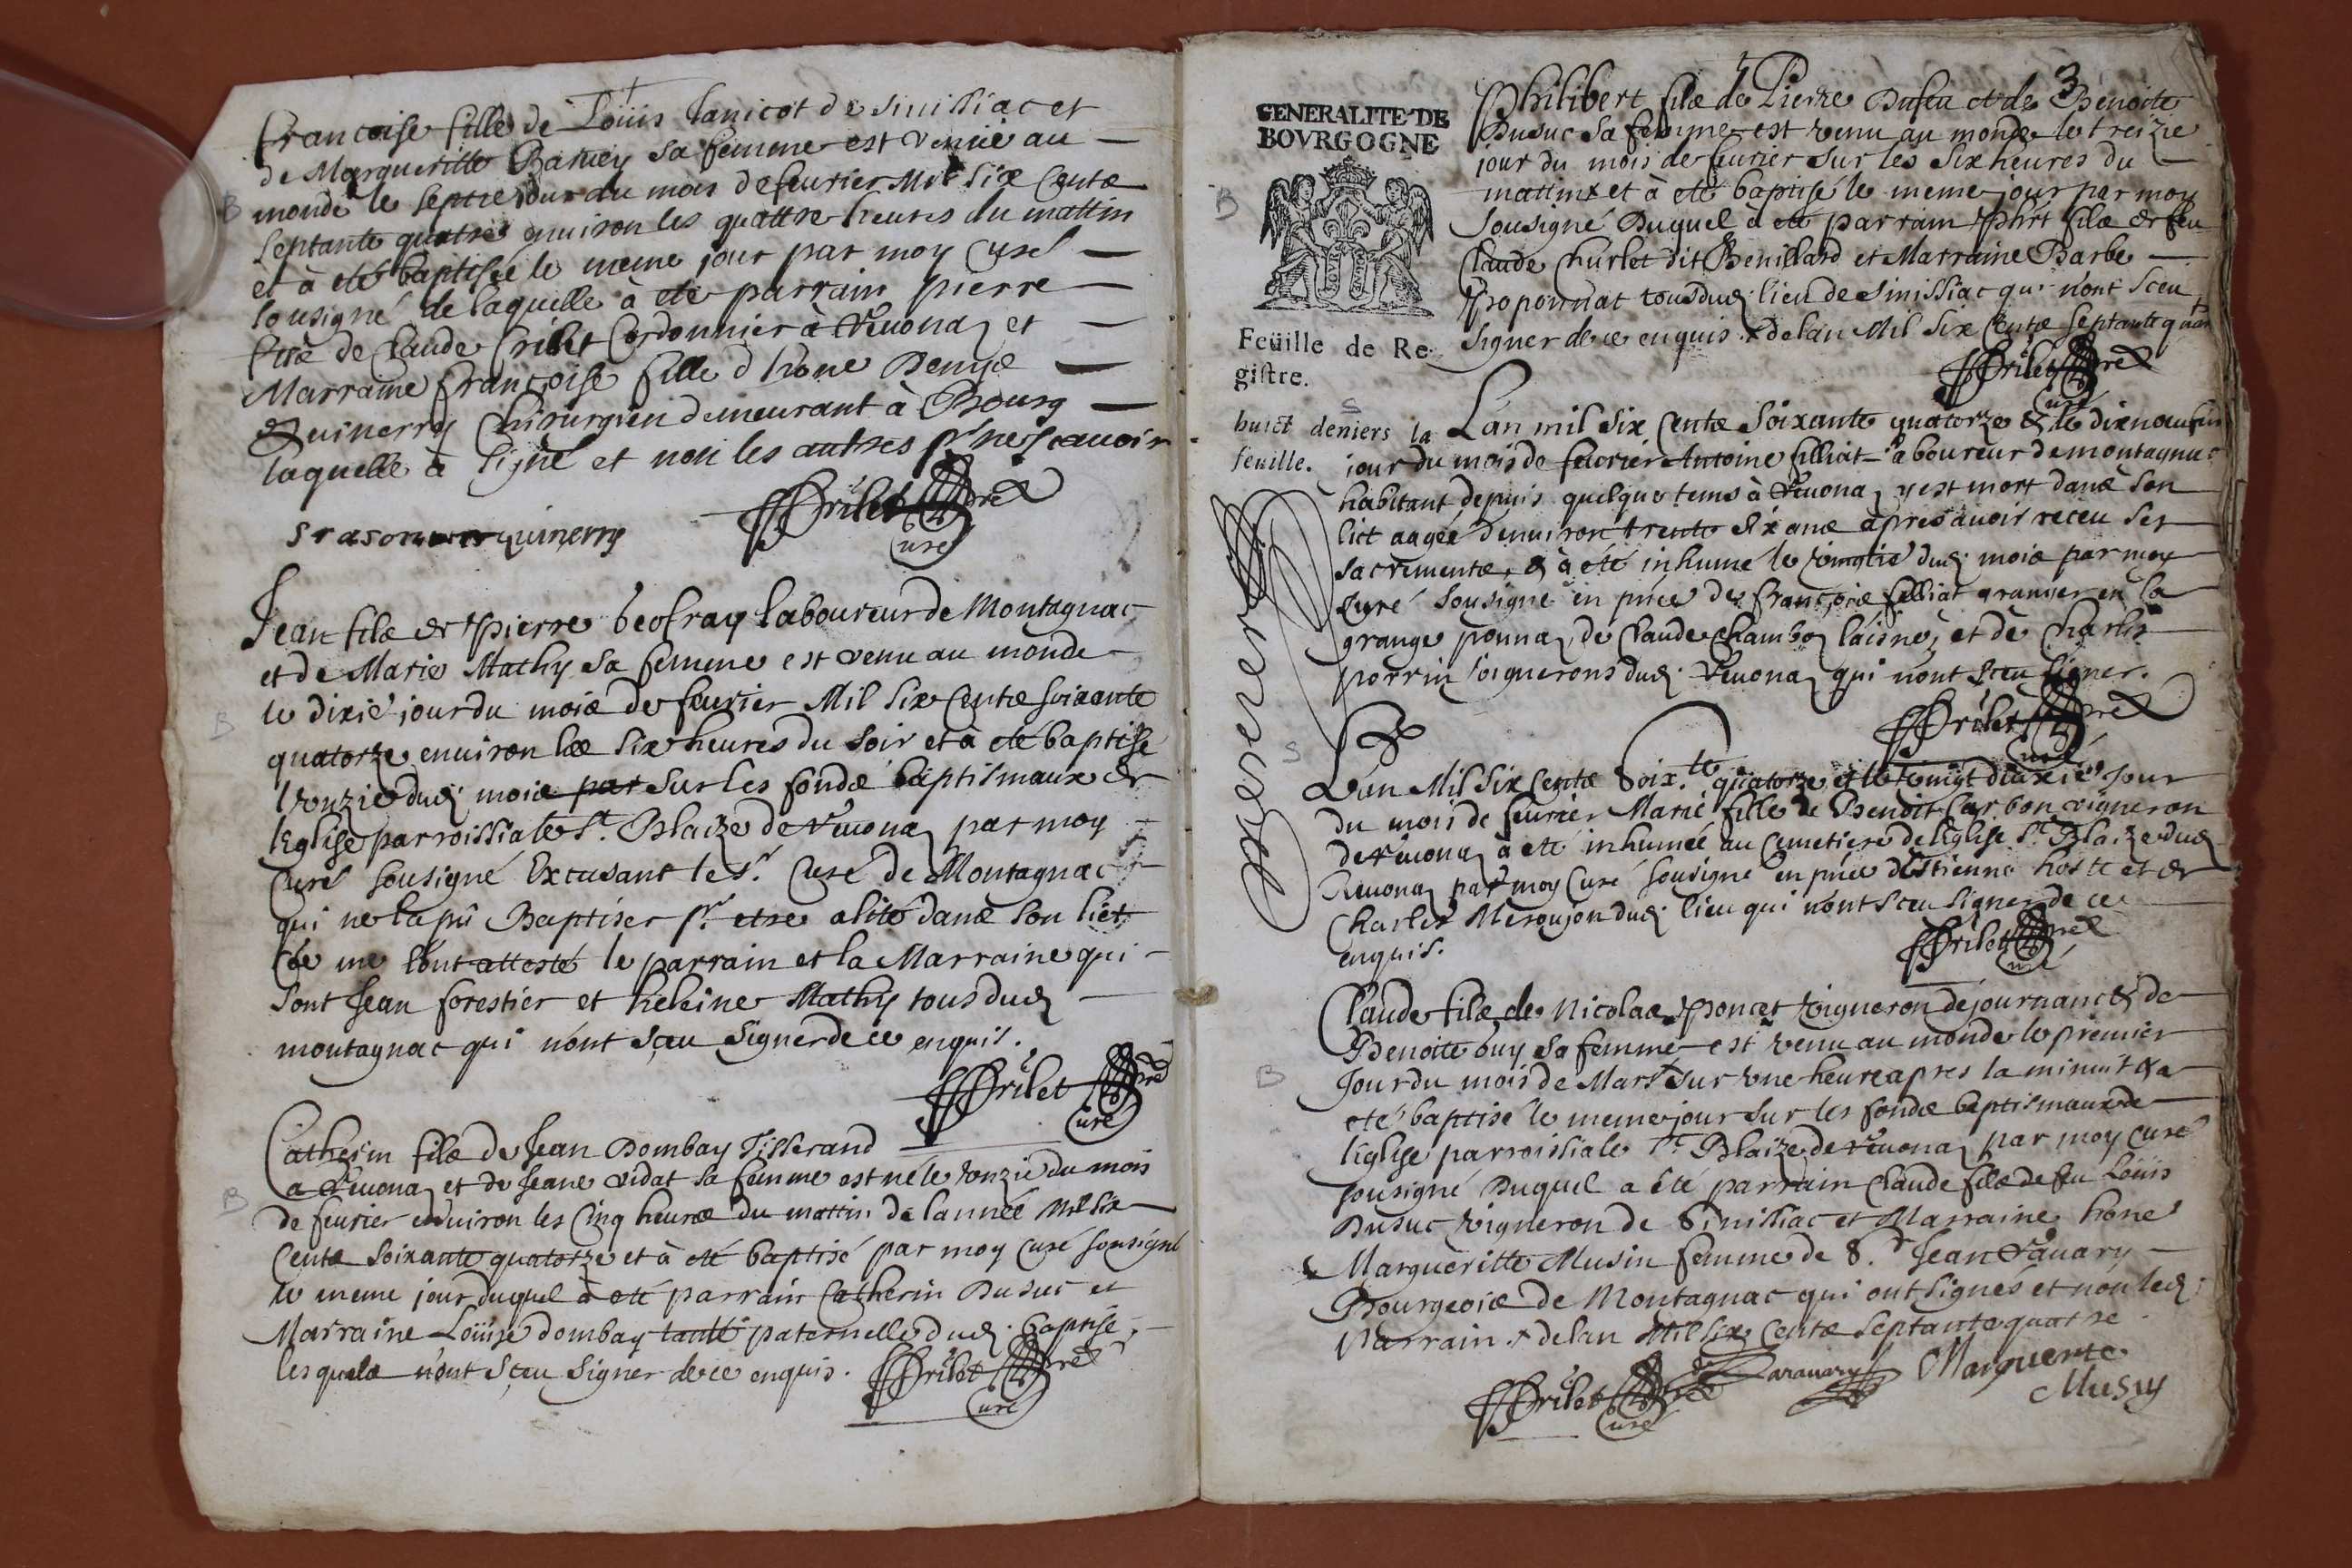 Francoise fille de Loüis Janicot de Sinissiac et
de Margueritte Baruey sa femme est venüe au
monde le septie jour du mois de feurier Mil six Centz
septante quatre enuiron les quattre heures du mattin
et à eté baptisée le meme jour par moy Curé
sousigné de laquelle à eté parrain pierre
filz de Claude Cordonnier à Reuonaz et
Marraine françoise fille d'hone
Quinerry Chirurgien demeurant à Bourg
laquelle à signé et non les autres pr ne scauoir
FFrilet pre
Curé
quinerry
Jean filz de Pierre Geofray laboureur de Montagnac
et de Marie Mathy sa femme est venu au monde
le dixie jour du mois de feurier Mil six Centz soixante
quatorze enuiron les six heures du soir et à eté baptisé
l'onzie dud. mois par sur les fondz baptismaux de
l'Eglise parroissiale St. Blaize de Reuonaz par moy
Curé sousigné Excusant le Sr. Curé de Montagnac
qui ne la pû Baptiser pr. etre alité dans son lict
Ce me l'ont attesté le parrain et la Marraine qui
sont Jean forestier et heleine Mathy tous dud.
montagnac qui n'ont sceu signer de ce enquis.
FFrilet pre
Curé
Catherin filz de Jean Dombay Tisserand
a Reuonaz et de Jeane vidat sa femme est né le onzie du mois
de feurier enduiron les Cinq heures du mattin de lannée Mil six
Centz soixante quatorze et à eté baptisé par moy Curé sousigné
le meme jour duquel à eté parrain Catherin Dusuc et
Marraine Loüise dombay tante paternelle dud. Baptisé,
lesquelz n'ont sceu signer de ce enquis. FFrilet pre
Curé
3
GENERALITE DE
BOVRGOGNE
Feüille de Re-
gistre.
huict deniers la
feuille.
Philibert filz de Pierre Dufeu et de Benoite
Dusuc sa femme est venu au monde le treizie
jour du mois de feurier sur les six heures du
mattin x et à eté baptisé le meme jour par moy
sousigné Duquel à eté parrain Phrt filz de feu
Claude Churlet dit Benillard et Marraine Barbe
Troponnat tous dud. lieu de Sinissiac qui n'ont sceu
signer de ce enquis. x de lan Mil six Centz septante quatre
FFrilet pre
Curé
L'an mil six Centz soixante quatorze & le dixneufuie
jour du mois de feurier Antoine filliat laboureur de montagnac
habitant depuis quelque tems à Reuonaz y est mort dans son
lict aagée d'enuiron trente six ans apres auoir receu ses
sacrementz, & à eté inhumé le vingtie dud. mois par moy
Curé sousigné en pnce de françois filliat granger en la
grange ponnaz, de Claude Chambaz laisné, et de Charles
porrin vignerons dud. Reuonaz qui n'ont sceu signer.
FFrilet pre
Curé
L'an Mil six Centz Soix.te quatorze et le vingt deuxie jour
du mois de feurier Marie fille de Benoit Carbon vigneron
de Reuonaz à eté inhumée au Cemetiere de l'Eglise St. Blaize dud.
Reuonaz par moy Curé sousigné en pnce d'Estienne hoste et de
Charles Meroujon dud. lieu qui n'ont sceu signer de ce
enquis.
FFrilet pre
Curé
Claude filz de Nicolas Poncet vigneron de journanc & de
Benoite buy sa femme est venu au monde le premier
Jour du mois de Mars sur vne heure apres la minuit & a
eté baptisé le meme jour sur les fondz baptismaux de
l'Eglise parroissiale St. Blaize de Reuonaz par moy Curé
sousigné Duquel a été parrain Claude filz de feu Loüis
Dusuc vigneron de Sinissiac et Marraine hone
Margueritte Musin femme de S.r Jean Rauary
Bourgeois de Montagnac qui ont signés et non led.
Parrain x de lan Mil six Centz septante quatre
FFrilet pre
Curé
Marguerite
Musy